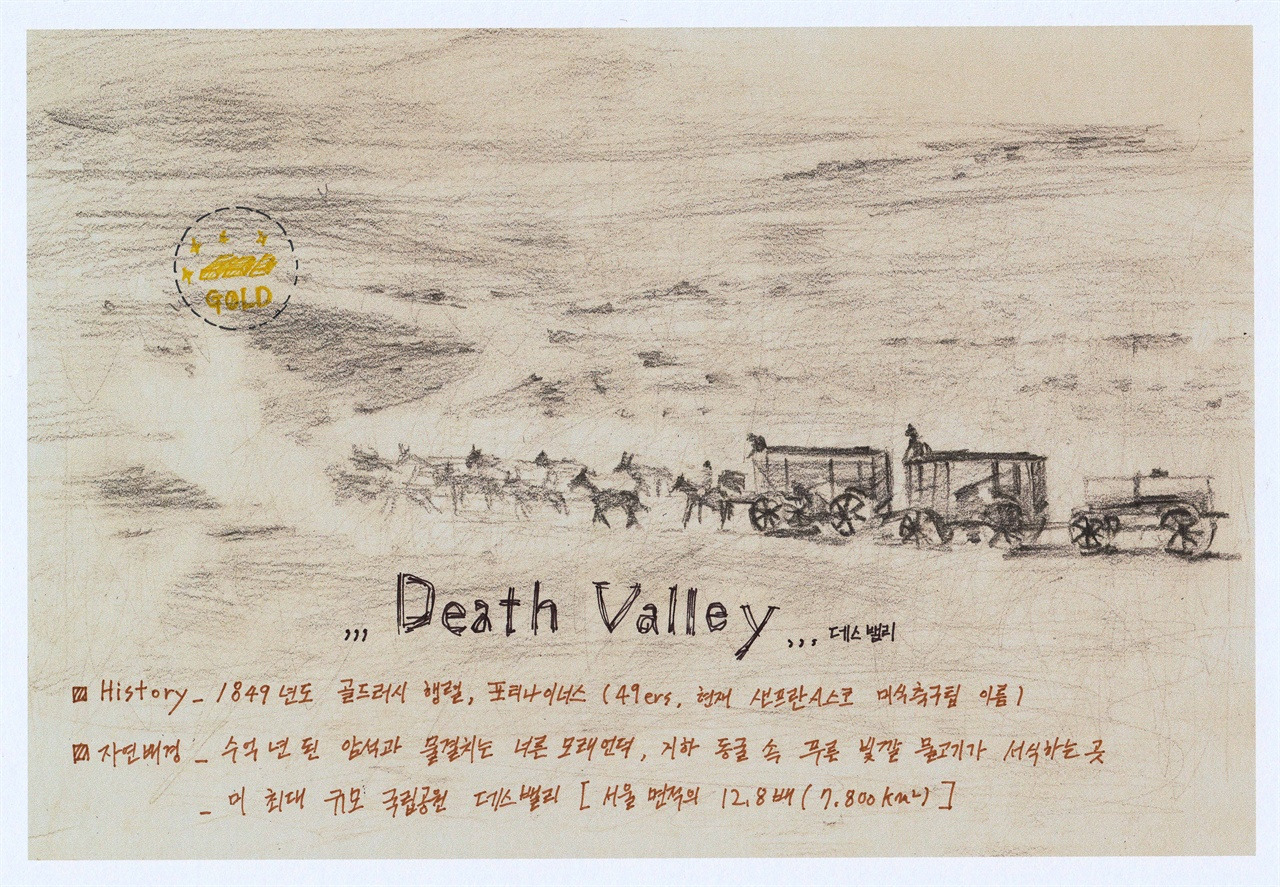 GOLD
,,, Death Valley ,,, 데스밸리
History_ 1849년도 골드러시 행렬, 포티나이너스 (49ers, 현재 샌프란시스코 미식축구팀 이름)
자연배경 _ 수억 년 된 암석과 물결치는 너른 모래언덕, 지하 동굴 속 푸른 빛깔 물고기가 서식하는 곳
_ 미 최대 규모 국립공원 데스밸리 [ 서울 면적의 12.8배 (7.800km²) ]